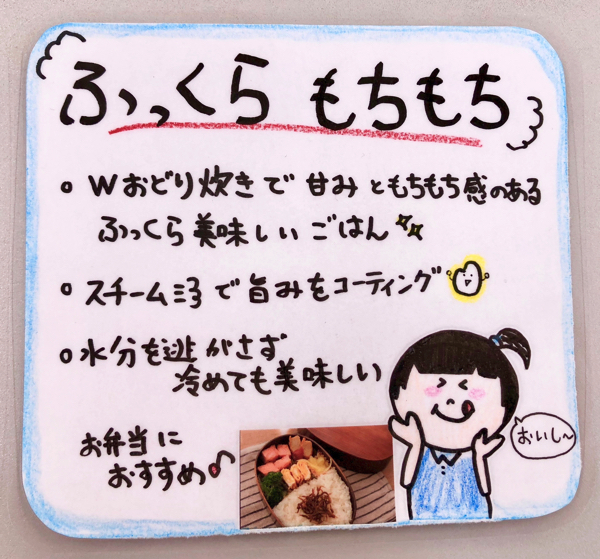 ふっくら もちもち
• Wおどり炊きで 甘みともちもち感のある
ふっくら美味しいごはん
• スチーム
で旨みをコーティング
• 水分を逃がさず
冷めても美味しい
お弁当に
おすすめ♪
おいし〜